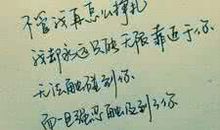 不管我再怎么挣扎
我却永远只能无限靠近于你
无法触碰到你
而一旦强忍触及到了你